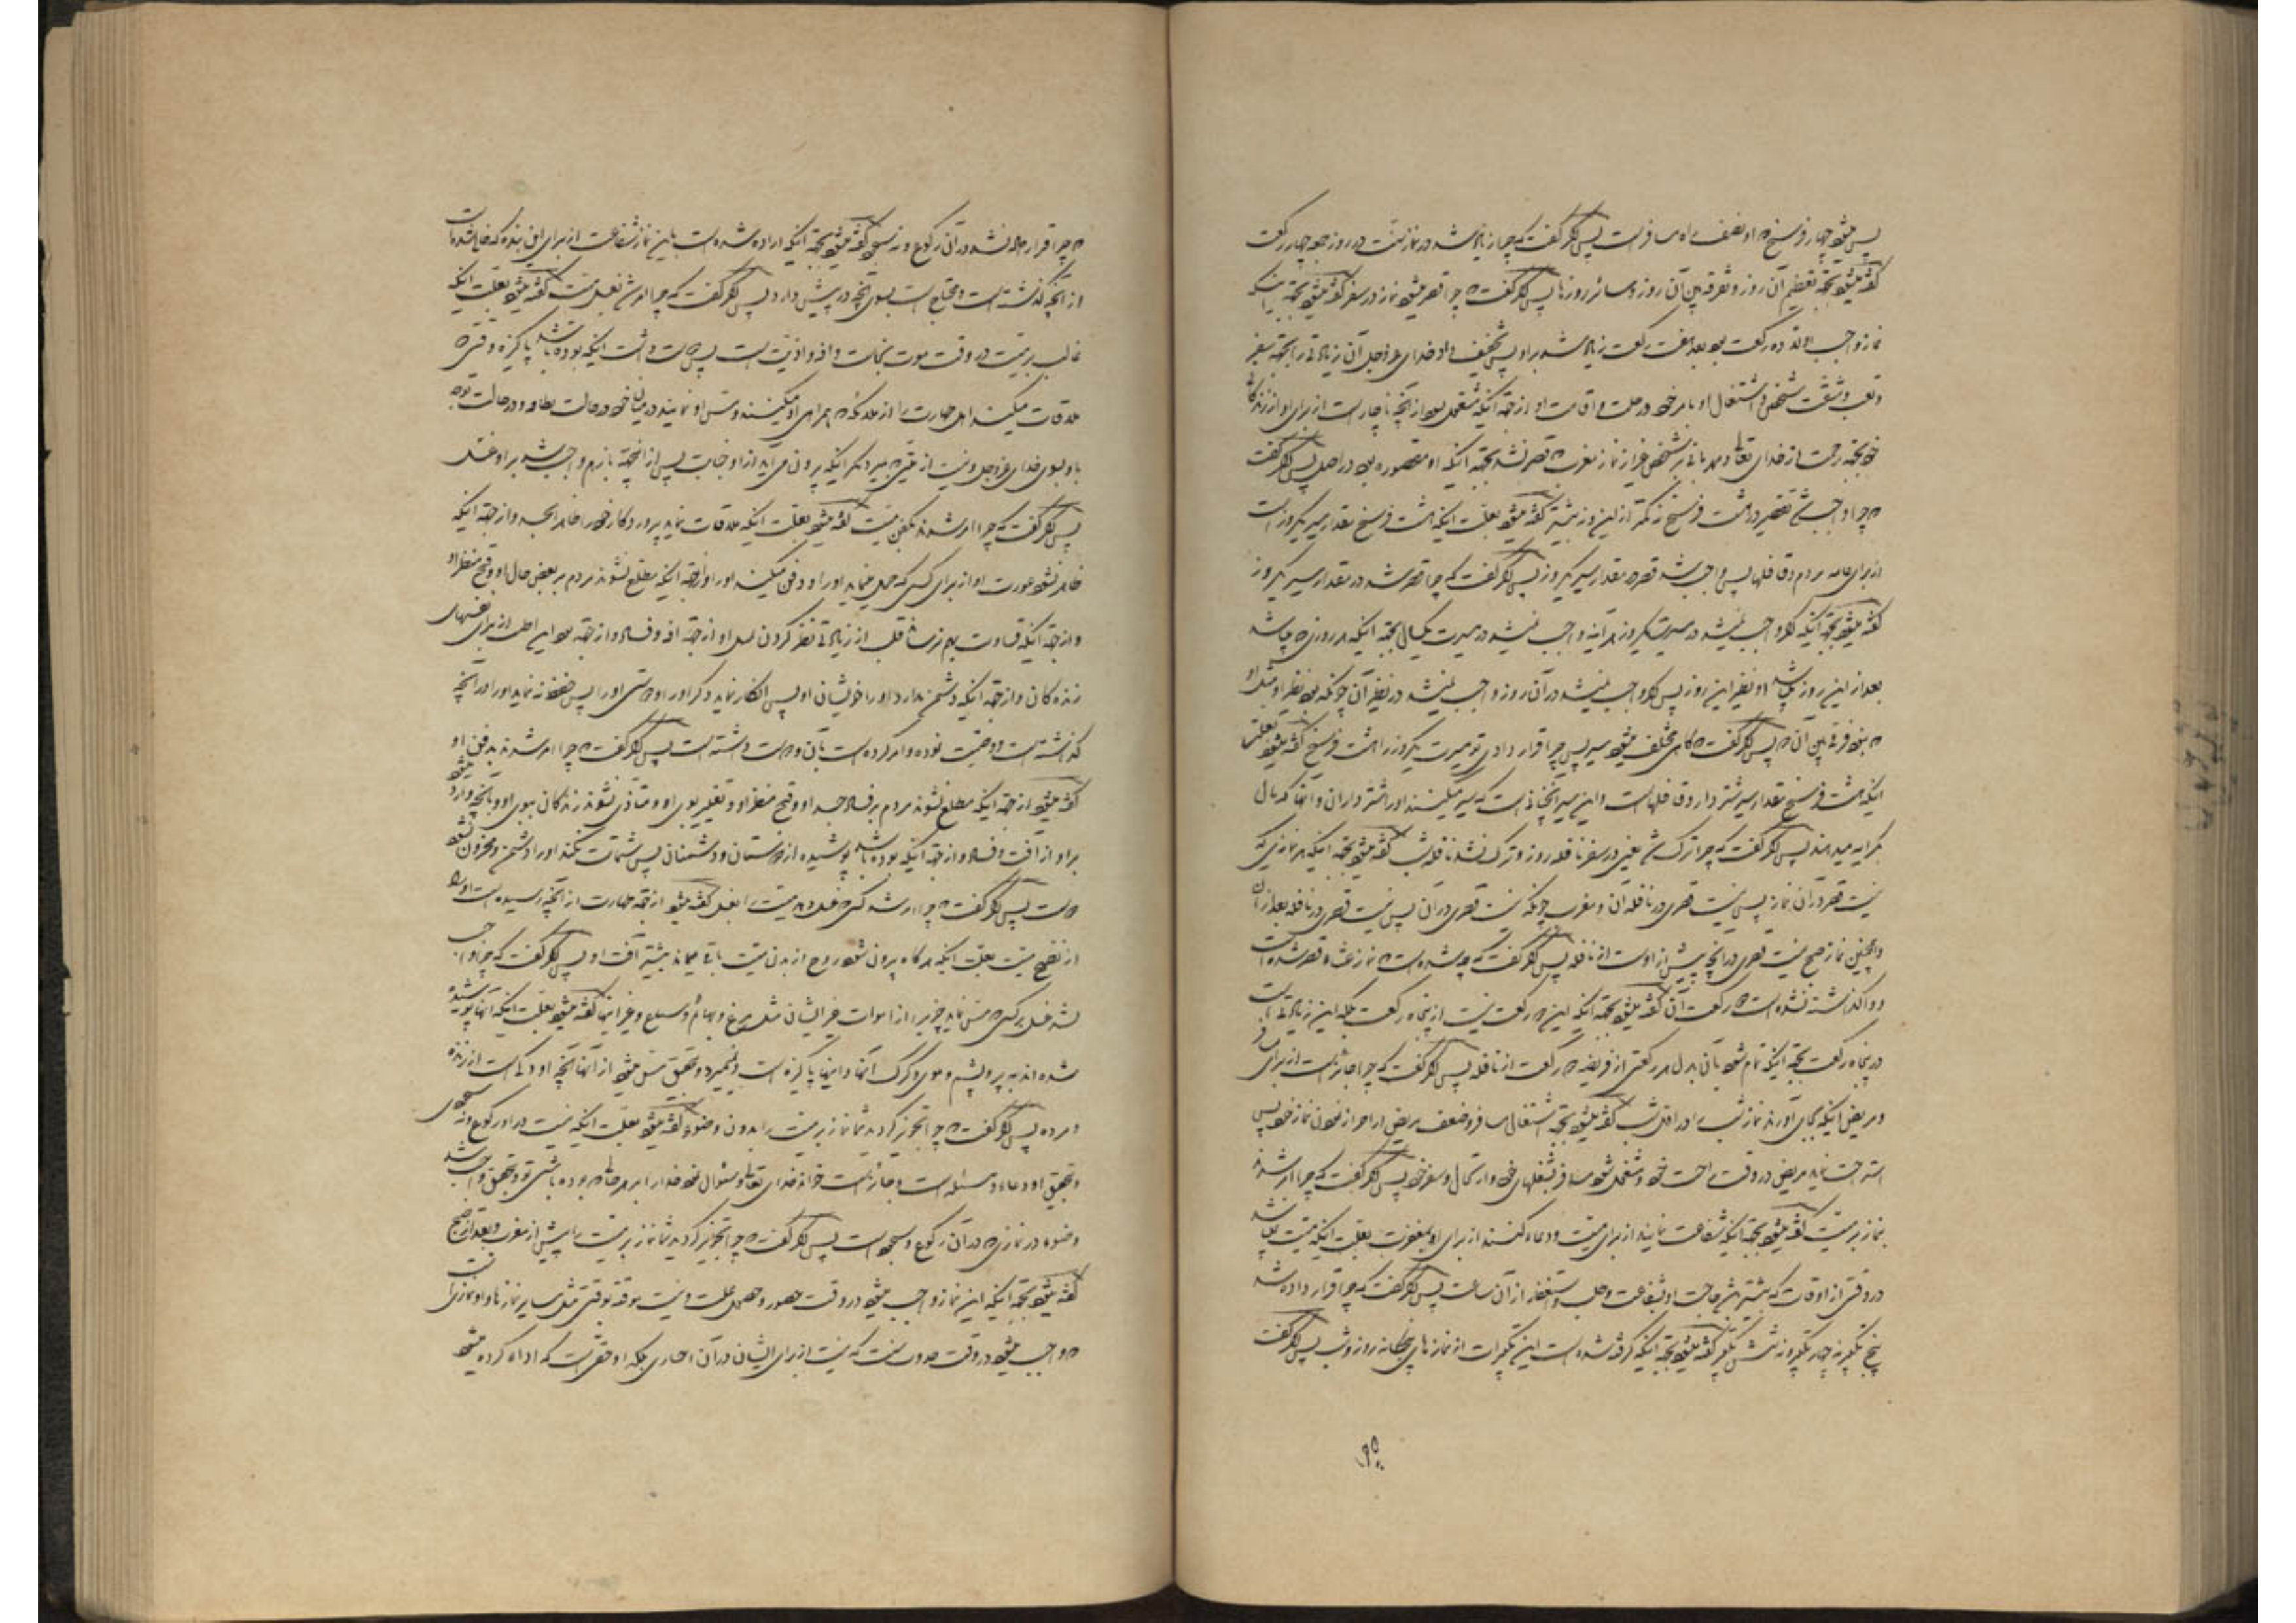 پس میشود چهار فرسخ که او نصف راه مسافر است پس اگر گفت که چرا زیاد شد در نماز سنت در روز جمعه چهار رکعت
گفته میشود بجهة تعظیم آن روز و تفرقه بین آن روز و سائر روزها پس اگر گفت که چرا قصر میشود نماز در سفر گفته میشود بجهة اینکه
نماز واجب اولا ده رکعت بود بعد هفت رکعت زیاد شد بر او پس تخفیف داد خدای عزوجل آن زیادتی را بجهة سفر
و تعب و مشقت شخص و اشتغال او بامر خود و رحلت و اقامت او از جهة آنکه مشغول نشود از آنچه ناچار است از برای او از زندگانی
خود بجهة رحمت از خدای تعالی و مهربانی بر شخص غیر از نماز مغرب که قصر نشد بجهة اینکه او مقصوره بود در اصل پس اگر گفت
که چرا واجب شد تقصیر در هشت فرسخ نه کمتر از این و نه بیشتر گفته میشود بعلت اینکه هشت فرسخ مقدار سیر یکروز است
از برای عامه مردم و قافلها پس واجب شد قصر در مقدار سیر یکروز پس اگر گفت که چرا قصر شد در مقدار سیر یکروز
گفته میشود بجهة اینکه اگر واجب نمیشد در سیر یکروز هر آینه واجب نمیشد در سیرت یکسال بجهة اینکه هر روزی که میباشد
بعد از این روز پس او نظیر این روز پس اگر واجب نمیشد در آن روز واجب نمیشد در نظیر آن چونکه بود نظیر او مثل او
که نبود فرقی بین آن پس اگر گفت که گاهی مختلف میشود سیر پس چرا قرار دادی تو مسیرت یکروز را هشت فرسخ گفته میشود بعلت
اینکه هشت فرسخ مقدار سیر شتردار و قافلهاست و این سیر آنچنانی است که سیر میکنند او را شترداران و آنها که مال
بکرایه میدهند پس اگر گفت که چرا ترک شد یعنی در سفر نافله روز و ترک نشد نافله شب گفته میشود بجهة اینکه هر نمازی که
نیست قصر در آن نماز پس نیست قصری در نافله آن و مغرب چونکه نیست قصری در آن پس نیست قصری در نافله بعد از آن
و همچنین نماز صبح نیست قصری در آنچه پیش از اوست از نافله پس اگر گفت که چه شده است که نماز عشاء قصر شده است
و واگذاشته نشده است دو رکعت آن گفته میشود بجهة اینکه این دو رکعت نیست از پنجاه رکعت بلکه این زیادتی است
در پنجاه رکعت بجهة اینکه تمام شود بآن بدل هر رکعتی از فریضه دو رکعت از نافله پس اگر گفت که چرا جائز است از برای مسافر
و مریض اینکه بجای آورند نماز شب را در اول شب گفته میشود بجهة اشتغال مسافر و ضعف مریض از احراز نمودن نماز خود پس
استراحت نماید مریض در وقت راحت خود و مشغول شود مسافر بشغلهای خود و ارتحال و سفر خود پس اگر گفت که چرا امر شدند
بنماز بر میت گفته میشود بجهة اینکه شفاعت نمایند از برای میت و دعاء کنند از برای او بمغفرت بعلت اینکه میت نمیباشد
در وقتی از اوقات که بیشتر باشد حاجت او بشفاعت و طلب و استغفار از آن ساعت پس اگر گفت که چرا قرار داده شد
پنج تکبیر نه چهار تکبیر و نه شش تکبیر گفته میشود بجهة اینکه گرفته شده است این تکبیرات از نمازهای پنجگانه روز و شب پس اگر گفت
که چرا قرار داده نشد در آن رکوع و نه سجود گفته میشود بجهة اینکه اراده شده است باین نماز شفاعت از برای این بنده که جدا شده است
از آنچه گذشته است و محتاج است بسوی آنچه در پیش دارد پس اگر گفت که چرا امر شد بغسل میت گفته میشود بعلت اینکه
غالب بر میت در وقت موت نجاست و آفه و اذیت است پس دوست داشت اینکه بوده باشد پاکیزه وقتی که
ملاقات میکند اهل طهارت را از ملائکه که همراهی او میکنند و مس او نمایند در میان خود در حالت طهاره و در حالت توجه
باو بسوی خدای عزوجل و نیست از میتی که میمیرد مگر اینکه بیرون می آید از او جنابت پس از اینجهة باز هم واجب شد بر او غسل
پس اگر گفت که چرا امر شدند بکفن میت گفته میشود بعلت اینکه ملاقات نماید پروردگار خود را طاهر الجسد و از جهة اینکه
ظاهر نشود عورت او از برای کسی که حمل مینماید او را و دفن میکند او را و از جهة اینکه مطلع نشوند مردم بر بعض حال او و قبح منظر او
و از جهة اینکه قساوت بهم نرساند قلب از زیادتی نظر کردن بمثل او از جهة آفه و فساد و از جهة بودن این اطیب از برای نفسهای
زنده کان و از جهة اینکه دشمن ندارد او را خویشان او پس انکار نماید ذکر او را و دوستی او را پس حفظ نه نماید او را در آنچه
گذشته است و وصیت نموده و امر کرده است بآن و دوست داشته است پس اگر گفت که چرا امر شدند بدفن او
گفته میشود از جهة اینکه مطلع نشوند مردم بر فساد جسد او و قبح منظر او و تغییر بوی او و متأذی نشوند زندگان ببوی او و بآنچه وارد میشود
بر او از آفت و فساد و از جهة اینکه بوده باشد پوشیده از دوستان و دشمنان پس شماتت نکند او را دشمن و محزون نشود
دوست پس اگر گفت که چرا امر شد کسی که غسل دهد میت را بغسل گفته میشود از جهة طهارت از آنچه رسیده است او را
از نضح میت بعلت اینکه هر گاه بیرون شود روح از بدن میت باقی میماند بیشتر آفت او پس اگر گفت که چرا واجب
نشد غسل بر کسی که مس نماید چیزی را از اموات غیر انسان مثل مرغ و بهائم و سباع و غیر اینها گفته میشود بعلت اینکه آنها پوشیده
شده اند به پر و پشم و موی و کرک آنها و اینها پاکیزه است و نمیمیرد و بتحقیق مس میشود از آنها آنچه او ذکی است از زنده
و مرده پس اگر گفت که چرا تجویز کردید شما نماز بر میت را بدون وضوء گفته میشود بعلت اینکه نیست در او رکوع و نه سجودی
و بتحقیق او دعاء و مسئله است و جائز است خواندن خدای تعالی و سئوال نمودن خدا را بر هر حال که بوده باشی تو و بتحقیق واجب شد
وضوء در نمازی که در آن رکوع و سجود است پس اگر گفت که چرا تجویز کردید شما نماز بر میت را پیش از مغرب و بعد از صبح
گفته میشود بجهة اینکه این نماز واجب میشود در وقت حضور و حصول علت و نیست موقت بوقتی مثل سایر نمازها و او نمازی است
که واجب میشود در وقت حدوث حدث که نیست از برای انسان در آن اختیاری بلکه او حقی است که اداء کرده میشود